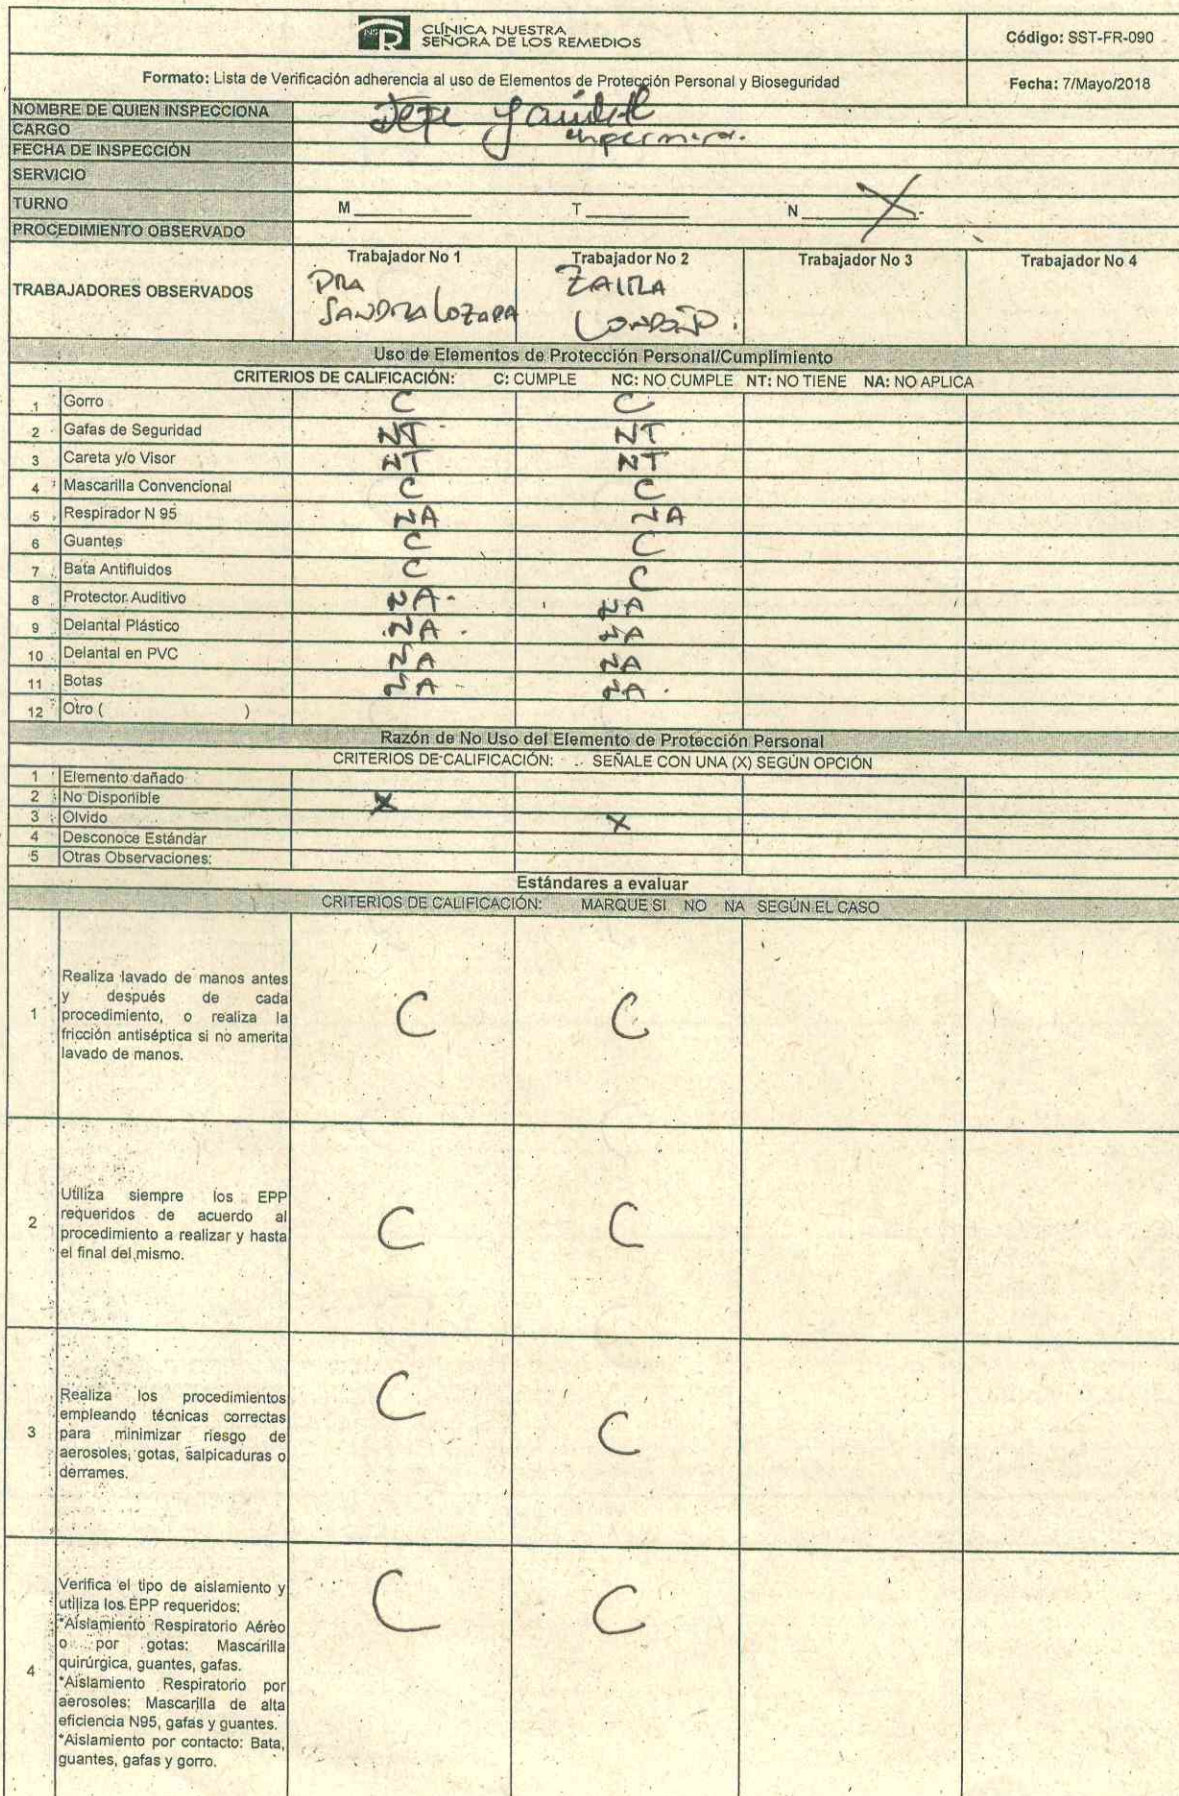 CLÍNICA NUESTRA
SEÑORA DE LOS REMEDIOS
Código: SST-FR-090
Formato: Lista de Verificación adherencia al uso de Elementos de Protección Personal y Bioseguridad
Fecha: 7/Mayo/2018
NOMBRE DE QUIEN INSPECCIONA Jefe
CARGO enfermera.
FECHA DE INSPECCIÓN
SERVICIO
TURNO M T N X
PROCEDIMIENTO OBSERVADO
TRABAJADORES OBSERVADOS
Trabajador No 1 Trabajador No 2 Trabajador No 3 Trabajador No 4
DRA ZAIRA
SANDRA LOZADA LONDOÑO.
Uso de Elementos de Protección Personal/Cumplimiento
CRITERIOS DE CALIFICACIÓN: C: CUMPLE NC: NO CUMPLE NT: NO TIENE NA: NO APLICA
1 Gorro C C
2 Gafas de Seguridad NT NT
3 Careta y/o Visor NT NT
4 Mascarilla Convencional C C
5 Respirador N 95 NA NA
6 Guantes C C
7 Bata Antifluidos C C
8 Protector Auditivo NA NA
9 Delantal Plástico NA NA
10 Delantal en PVC NA NA
11 Botas NA NA
12 Otro ( )
Razón de No Uso del Elemento de Protección Personal
CRITERIOS DE CALIFICACIÓN: SEÑALE CON UNA (X) SEGÚN OPCIÓN
1 Elemento dañado
2 No Disponible X
3 Olvido X
4 Desconoce Estándar
5 Otras Observaciones:
Estándares a evaluar
CRITERIOS DE CALIFICACIÓN: MARQUE SI NO NA SEGÚN EL CASO
1 C C
Realiza lavado de manos antes
y después de cada
procedimiento, o realiza la
fricción antiséptica si no amerita
lavado de manos.
2 C C
Utiliza siempre los EPP
requeridos de acuerdo al
procedimiento a realizar y hasta
el final del mismo.
3 C C
Realiza los procedimientos
empleando técnicas correctas
para minimizar riesgo de
aerosoles, gotas, salpicaduras o
derrames.
4 C C
Verifica el tipo de aislamiento y
utiliza los EPP requeridos:
*Aislamiento Respiratorio Aéreo
o por gotas: Mascarilla
quirúrgica, guantes, gafas.
*Aislamiento Respiratorio por
aerosoles: Mascarilla de alta
eficiencia N95, gafas y guantes.
*Aislamiento por contacto: Bata,
guantes, gafas y gorro.